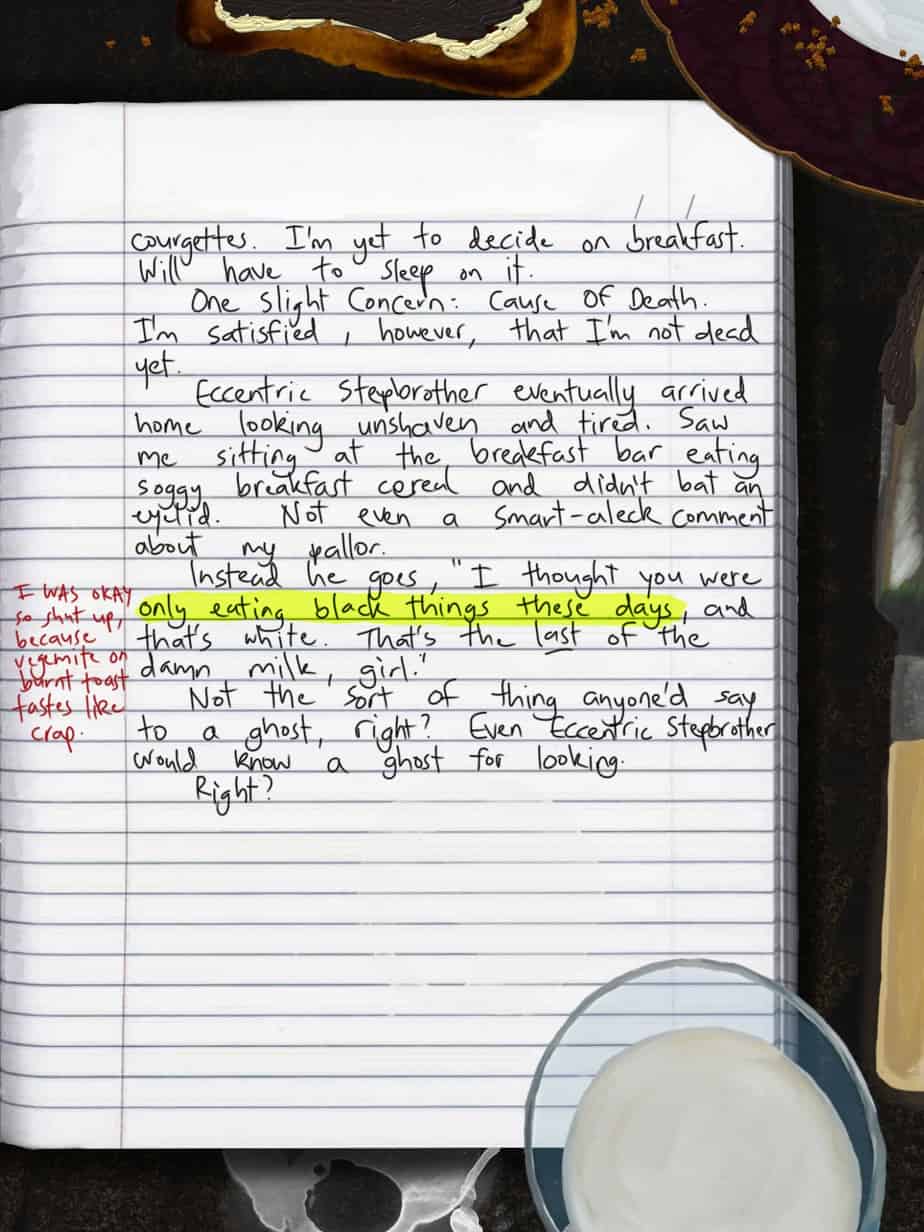 courgettes. I'm yet to decide on breakfast.
Will have to sleep on it.
One Slight Concern: Cause Of Death.
I'm satisfied, however, that I'm not dead
yet.
Eccentric Stepbrother eventually arrived
home looking unshaven and tired. Saw
me sitting at the breakfast bar eating
soggy breakfast cereal and didn't bat an
eyelid. Not even a smart-aleck comment
about my pallor.
Instead he goes, "I thought you were
only eating black things these days, and
that's white. That's the last of the
damn milk, girl."
Not the sort of thing anyone'd say
to a ghost, right? Even Eccentric Stepbrother
would know a ghost for looking.
Right?
I WAS OKAY
so shut up,
because
vegemite on
burnt toast
tastes like
crap.